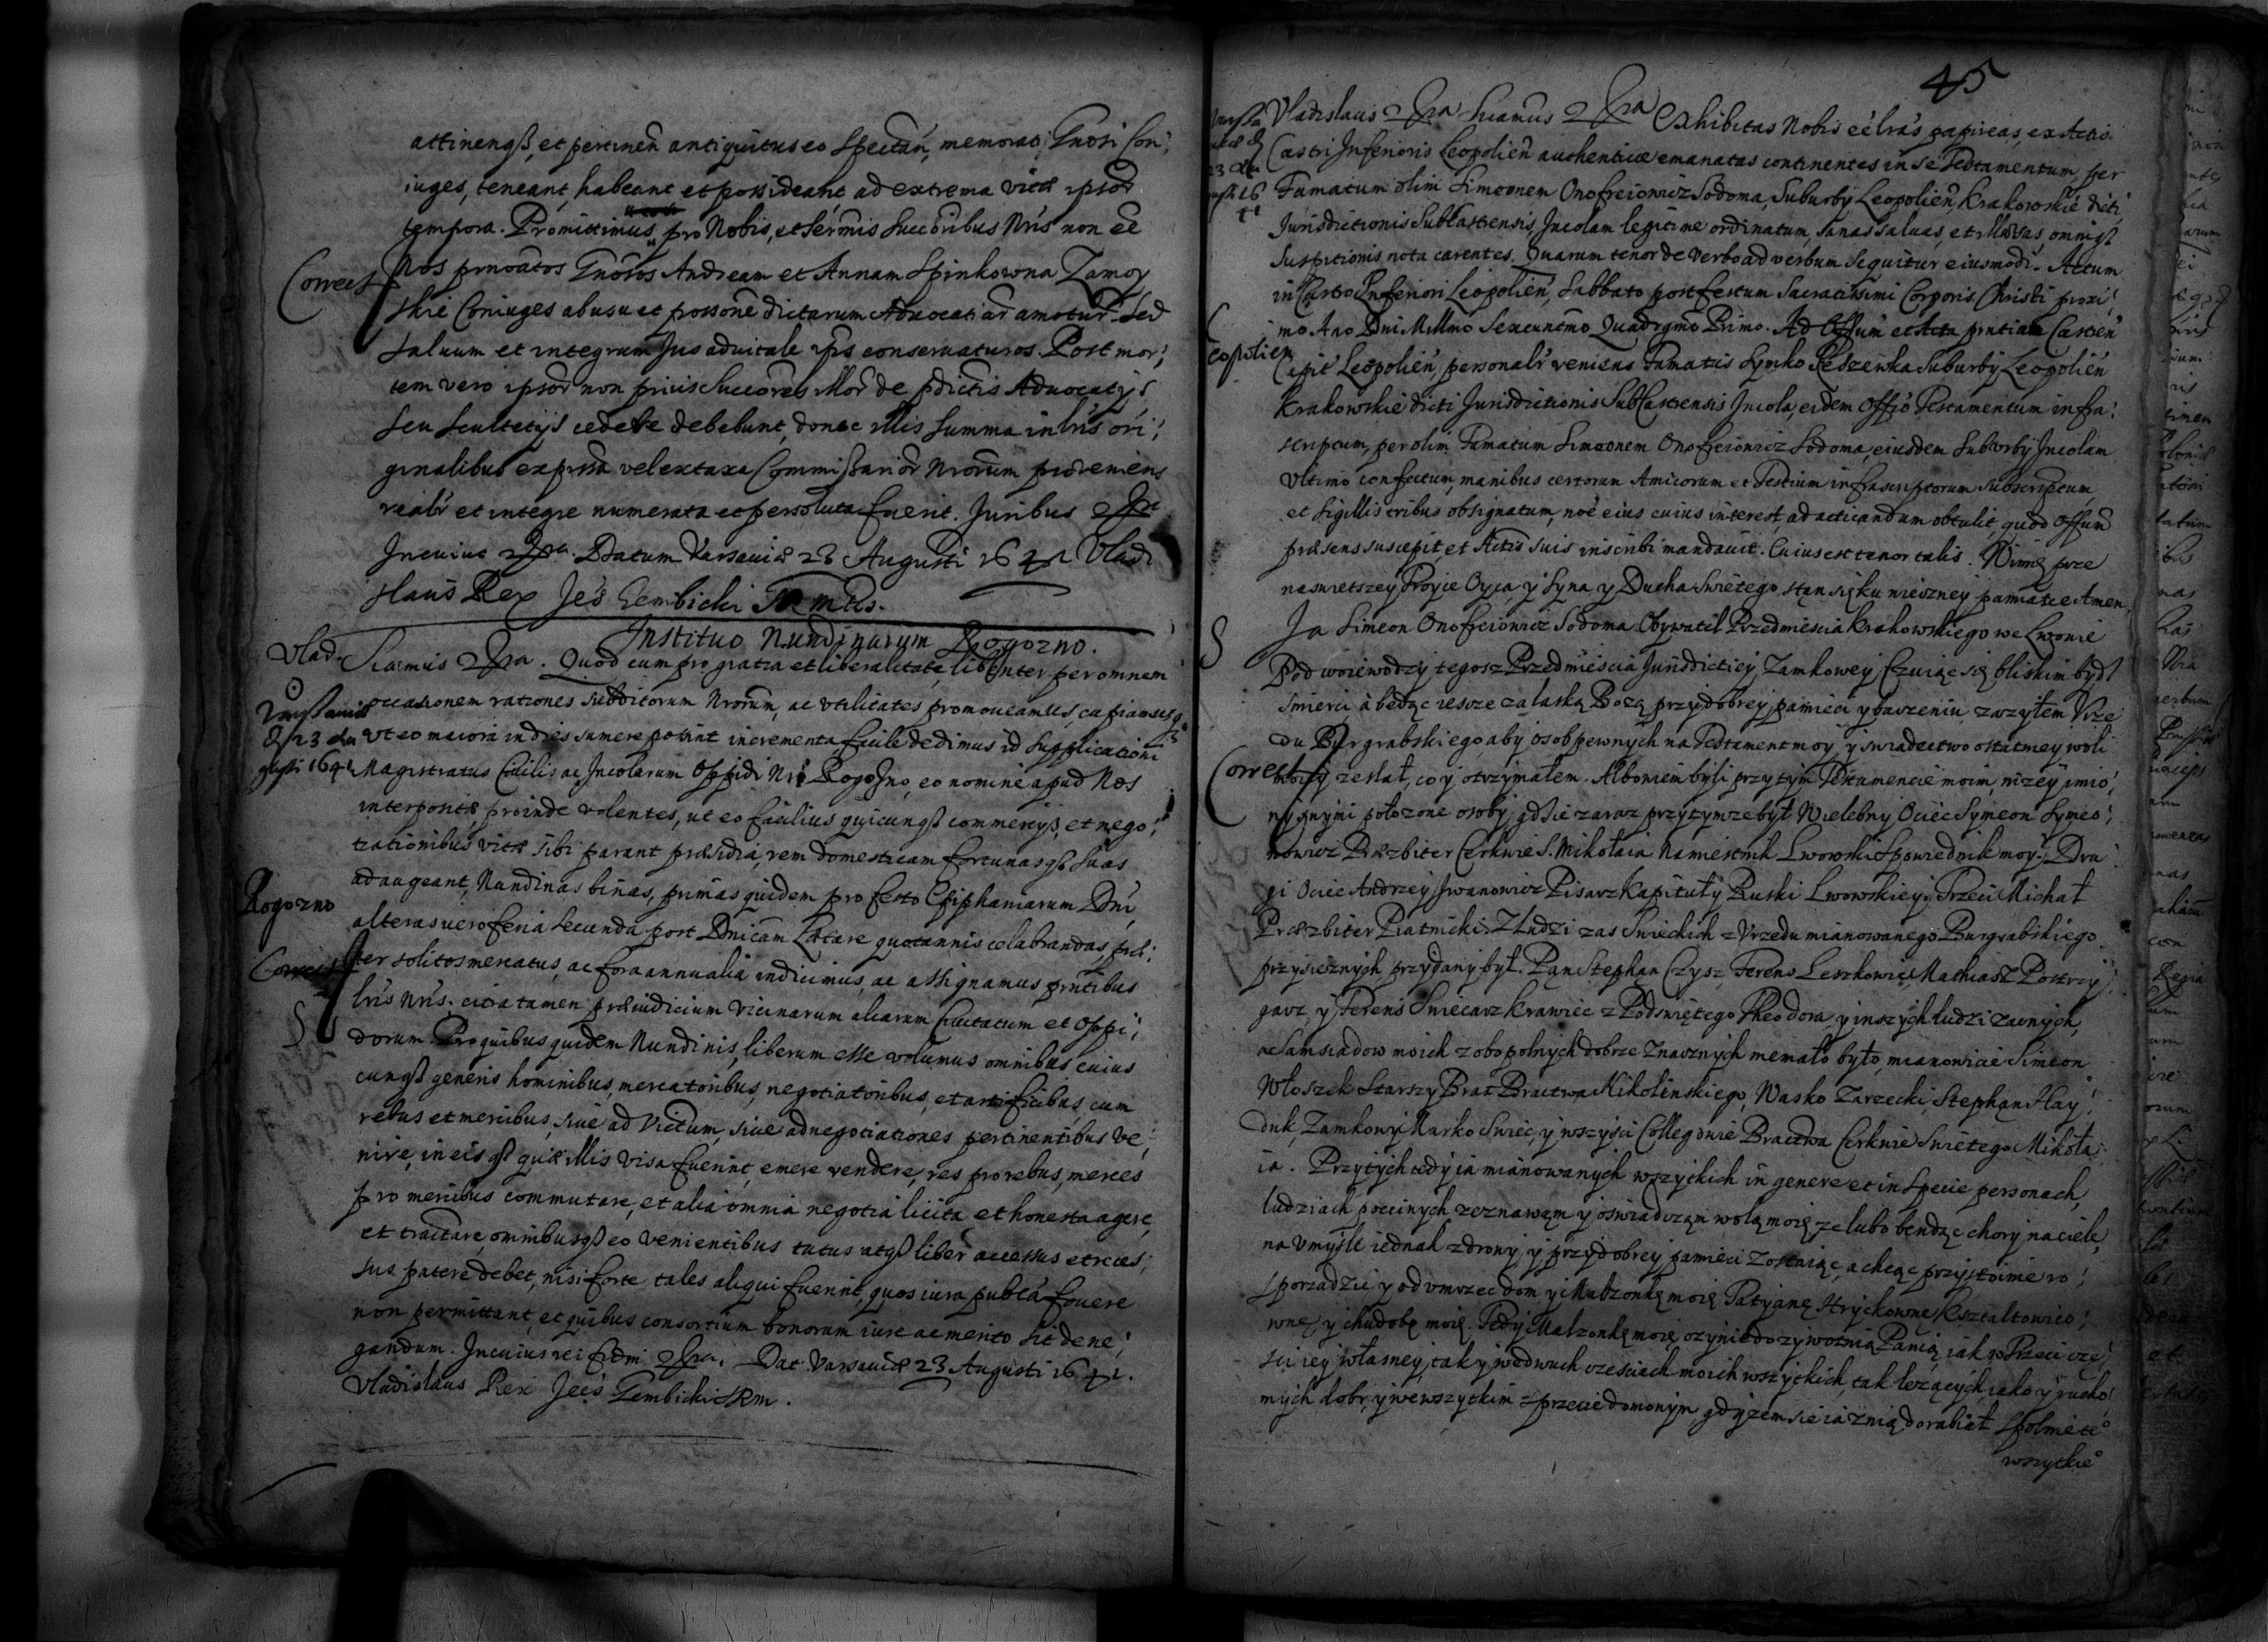 attinengß, et pertineñ antiquitus eo spectañ, memorati Gnosi Con¦
iuges, teneant, habeant et possideant, ad extrema vitæ ipsor̄
tempora. Promittimus pro Nobis, et Sermis Succoribus Nr̄is non eē
Correct
Nos prnoatos Gnosos Andream et Annam Spinkowna Zamoy
skie Coniuges ab usu et possone dictarum Aduocatiar̄ amotur̄. Sed
saluum et integrum Jus aduitale ip̄is conseruaturos. Post mor¦
tem vero ipsor̄ non prius Succores illor̄ de p̄dictis Aduocatijs
seu Scultetijs cedere debebunt, donec illis summa in lr̄is ori¦
ginalibus exp̄ssa vel ex taxa Commissarior̄ Nrorum proueniens
realr̄ et integre numerata et persoluta fuerit. Juribus
In cuius. Datum Varsauiæ 23 Augusti 1641 Vladi
slaus Rex Jeo Gembicki
Institutio Nundinarum Rogozno.
Vlad. Sicamus. Quod cum pro gratia et liberalitate, libenter per omnem
occasionem rationes subditorum Nrorum, ac vtilitates promoueamus, cupiamusq
Varssauiæ
D 23 Au
gusti 1641
Vt eo maiora in dies sumere possint incrementa facile dedimus id supplicationi
Magistratus Ciuilis ac Incolarum Oppidi Nri Rogozno, eo nomine apud Nos
interpositæ proinde volentes, ut eo facilius quicungß commercijs, et nego¦
tiationibus vitæ sibi parant præsidia, rem domesticam fortunasqß suas
Rogozno
adaugeant, Nundinas binas, primas quidem pro festo Epiphaniarum Dni,
alteras vero feria secunda post Dnicam Lætare quotannis celebrandas, præ¦
Correct
ter solitos mercatus, ac fora annualia indicimus, ac assignamus prntibus
lr̄is Nr̄is. citra tamen præiudicium vicinarum aliarum Ciuitatum et Oppi¦
dorum. Pro quibus quidem Nundinis, liberum esse volumus omnibus cuius
cungß generis hominibus, mercatoribus, negotiatoribus, et artificibus, cum
rebus et mercibus, siue ad victum, siue ad negotiationes pertinentibus ve¦
nire, in eisqß quæ illis visa fuerint, emere vendere, res pro rebus, merces
pro mercibus commutare, et alia omnia negotia licita et honesta agere,
et tractare, omnibusqß eo venientibus tutus atqß liber accessus et reces¦
sus patere debet, nisi forte tales aliqui fuerint, quos iura publca fouere
non permittant, et quibus consortium bonorum iure ac merito sit dene¦
gandum. In cuius rei fidm. Dat. Varsauiæ 23 Augusti 1641.
Vladislaus Rex Jeo Gembicki
45
Vladislaus Sicamus Exhibitas Nobis eē lrās papireas, ex Actis
Castri Inferioris Leopolień authentice emanatas continentes in se Testamentum, per
Famatum olim Simoonem Onofreiowicz Sodoma, Suburby Leopolień, Krakowskie dicti,
Jurisdictionis SubCastrensis, Incolam legitime ordinatum, sanas saluas, et illæsas, omniqß
suspitionis nota carentes. Quarum tenor de verbo ad verbum sequitur eiusmodi. Actum
in Castro Inferiori Leopolień, Sabbato post festum Sacratissimi Corporis Christi proxi¦
mo Ano Dni Millmo Sexcentmo Quadrgmo Primo. Ad Offum et Acta prntia Castreń
Leopolień
Capit Leopolień, personalr̄ veniens Famatus Symko Reszewka Suburby Leopolień
Krakowskie dicti Jurisdictionis SubCastrensis Incola, eidem Offio Testamentum infra¦
scriptum, per olim Famatum Simoonem Onofreiowicz Sodoma, eiusdem Suburby Incolam
Vltimo confectum, manibus certorum Amicorum et Testium infrascriptorum subscriptum
et Sigillis tribus obsignatum, noē eius cuius interest ad acticandum obtulit, quod Offum
præsens suscepit et Actis suis inscribi mandauit. Cuius est tenor talis. W imię prze
naswietszey Troyce Oyca y Syna y Ducha swietego stan się ku wieczney pamiatce Amen.
Ja Simeon Onofreiowicz Sodoma Obywatel Przedmiescia Krakowskiego we Lwowie
Pod woiewodzy tegosz Przedmiescia Jurisdictiey Zamkowey Czuiąc się bliskim bydz
smierci, a będąc iescze za laską Bozą przy dobrey pamieci y baczeniu zazyłem Vrze
du Burgrabskiego, aby osob pewnych na Testament moy, y swiadectwo ostatniey woli
Correct
moiey zesłał, co y otrzymałem. Albowiem byli przy tym Testamencie moim, nizey imio¦
ny ynnymi połozone osoby, gdsie zaraz przy tym ze był Wielebny Ociec Symeon Symeo¦
nowicz Præzbiter Cerkwie S. Mikołaia Namiestnik Lwowski Spowiednik moy. Dru¦
gi Ociec Andrzey Jwanowicz Pisarz Kapituły Ruski Lwowskiey. Trzeci Michał
Præzbiter Piatnicki. Z Ludzi zas Swieckich z Vrzedu mianowanego Burgrabskiego
przysieznych przydany był. Pan Stephan Czysz, Ferens Leszkowic, Mathiasz Postrzy¦
garz, y Ferens Swiecarz krawiec z Pod swiętego Theodora, y inszych ludzi zacnych,
a Samsiadow moich z obopolnych dobrze znacznych niemało było, mianowicie Simeon
Włoszek Starszy Brat Bractwa Mikolinskiego, Wasko Zarzecki, Stephan Hay¦
duk, Zamkowy Marko Swiec, y wszysci Collegowie Bractwa Cerkwie Swiętego Mikoła¦
ia. Przy tych tedy ia mianowanych wszytkich in genere et in specie personach,
ludziach poczciwych zeznawam y oswiadczam wolą moię ze lubo bendąc chory na ciele,
na vmyśle iednak zdrowy, y przy dobrey pamieci zostaiąc, a chcąc przystoinie ro¦
sporzadzić y odumrzec dom y Małzonkę moię Tatyanę Hryckownę Ksztaltowico¦
wnę, y chudobę moię. Tedy Małzonkę moię czynię dozywotnią Panią, iak w Trzeci czę¦
sci iey własney, tak y we dwuch czesciach moich wszytkich, tak lezących, iako y rucho¦
mych dobr, y we wszytkim sprzecie domowym, gdyzem sie ia z nią dorabiał spolnie te°
wszytkie°